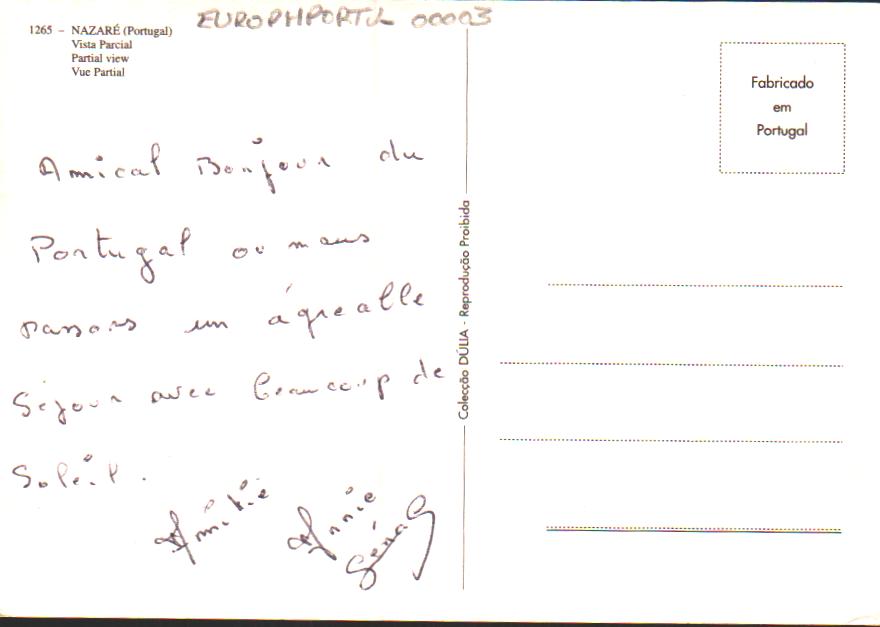 EUROPHPORTUL 00003
1265 – NAZARÉ (Portugal)
Vista Parcial
Partial view
Vue Partial
Amical Bonjour du
Portugal ou nous
passons un agréable
Séjour avec beaucoup de
Soleil.
Amitié Annie
Colecção DÚLIA - Reprodução Proibida
Fabricado
em
Portugal